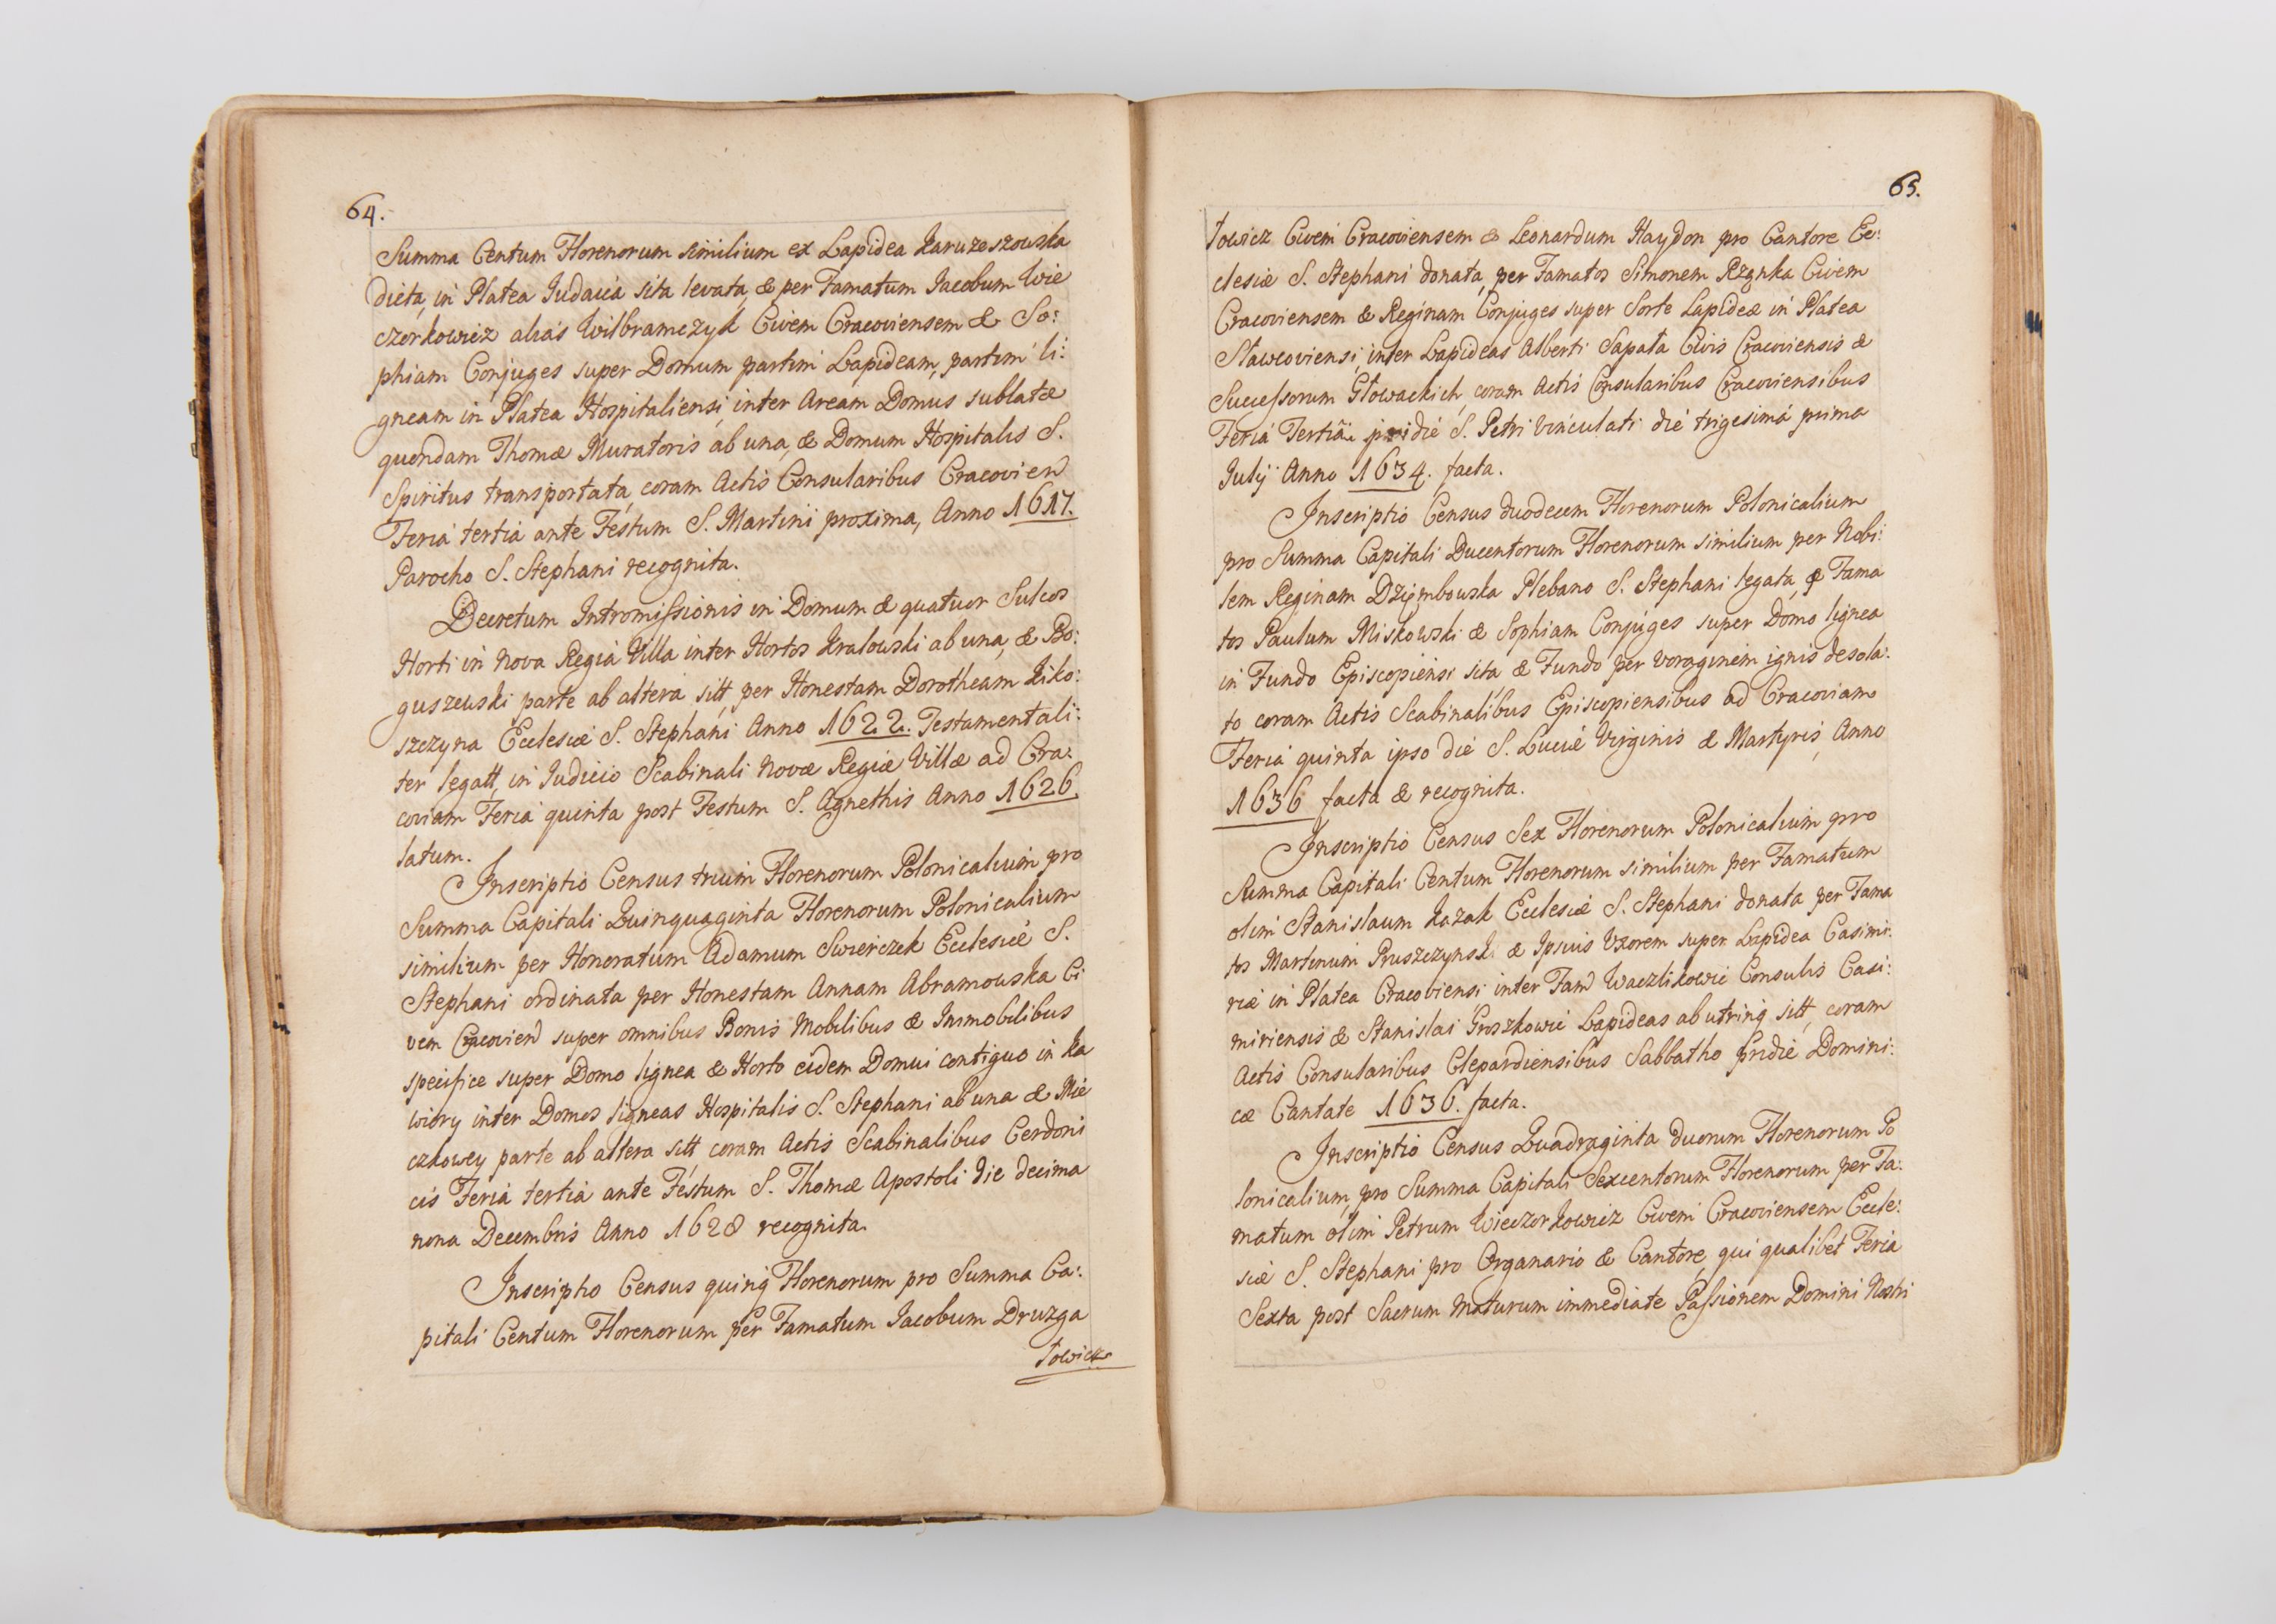 64.
Summa Centum Florenorum similium ex Lapidea Karuzeszowska
dicta, in Platea Judaica sita levata, & per Famatum Jacobum Wie
czorkowicz alias Wilbramczyk Civem Cracoviensem & So:
phiam Conjuges super Domum partim Lapideam, partim li:
gneam in Platea Hospitaliensi, inter Aream Domus sublatæ
quondam Thomæ Muratoris ab una, & Domum Hospitalis S.
Spiritus transportata, coram Actis Consularibus Cracovien
Feria tertia ante Festum S. Martini proxima, Anno 1617.
Parocho S. Stephani recognita.
Decretum Intromissionis in Domum & quatuor Sulcos
Horti in Nova Regia Villa inter Hortos Kralowski ab una, & Bo:
guszewski parte ab altera sitt, per Honestam Dorotheam Kiko:
szczyna Ecclesiæ S. Stephani Anno 1622. Testamentali:
ter legatt, in Judicio Scabinali Novæ Regiæ Villæ ad Cra:
coviam Feria quinta post Festum S. Agnethis Anno 1626.
latum.
Inscriptio Census trium Florenorum Polonicalium pro
Summa Capitali Quinquaginta Florenorum Polonicalium
similium per Honoratum Adamum Swierczek Ecclesiæ S.
Stephani ordinata per Honestam Annam Abramowska Ci
vem Cracovien super omnibus Bonis Mobilibus & Immobilibus
specifice super Domo lignea & Horto eidem Domui contiguo in Ka
wiory inter Domos ligneas Hospitalis S. Stephani ab una & Mie
czkowey parte ab altera sitt coram Actis Scabinalibus Cerdoni
cis Feria tertia ante Festum S. Thomæ Apostoli die decima
nona Decembris Anno 1628 recognita.
Inscriptio Census quinq Florenorum pro Summa Ca:
pitali Centum Florenorum per Famatum Jacobum Druzga
łowicz
65.
łowicz Civem Cracoviensem & Leonardum Haydon pro Cantore Ec:
clesiæ S. Stephani donata, per Famatos Simonem Rzynka Civem
Cracoviensem & Reginam Conjuges super Sorte Lapideæ in Platea
Sławcoviensi, inter Lapideas Alberti Sapata Civis Cracoviensis &
Successorum Głowackich, coram Actis Consularibus Cracoviensibus
Feria Tertia pridie S. Petri Vinculati die trigesima prima
Julij Anno 1634. facta.
Inscriptio Census duodecem Florenorum Polonicalium
pro Summa Capitali Ducentorum Florenorum similium per Nobi:
lem Reginam Dziembowska Plebano S. Stephani legata, p Fama
tos Paulum Miskowski & Sophiam Conjuges super Domo lignea
in Fundo Episcopiensi sita & Fundo per voraginem ignis desola:
to coram Actis Scabinalibus Episcopiensibus ad Cracoviam
Feria quinta ipso die S. Luciæ Virginis & Martyris, Anno
1636 facta & recognita.
Inscriptio Census Sex Florenorum Polonicalium pro
Summa Capitali Centum Florenorum similium per Famatum
olim Stanislaum Kazak Ecclesiæ S. Stephani donata per Fama
tos Martinum Pruszczynski & Ipsius Uxorem super Lapidea Casimi:
riæ in Platea Cracoviensi inter Fam Waczlikowic Consulis Casi:
miriensis & Stanislai Groszkowic Lapideas ab utrinq sitt, coram
Actis Consularibus Clepardiensibus Sabbatho pridie Domini:
cæ Cantate 1636. facta.
Inscriptio Census Quadraginta duorum Florenorum Po
lonicalium, pro Summa Capitali Sexcentorum Florenorum per Fa:
matum olim Petrum Wieczorkowicz Civem Cracoviensem Eccle:
siæ S. Stephani pro Organario & Cantore, qui qualibet Feria
Sexta post Sacrum Maturum immediate Passionem Domini Nostri